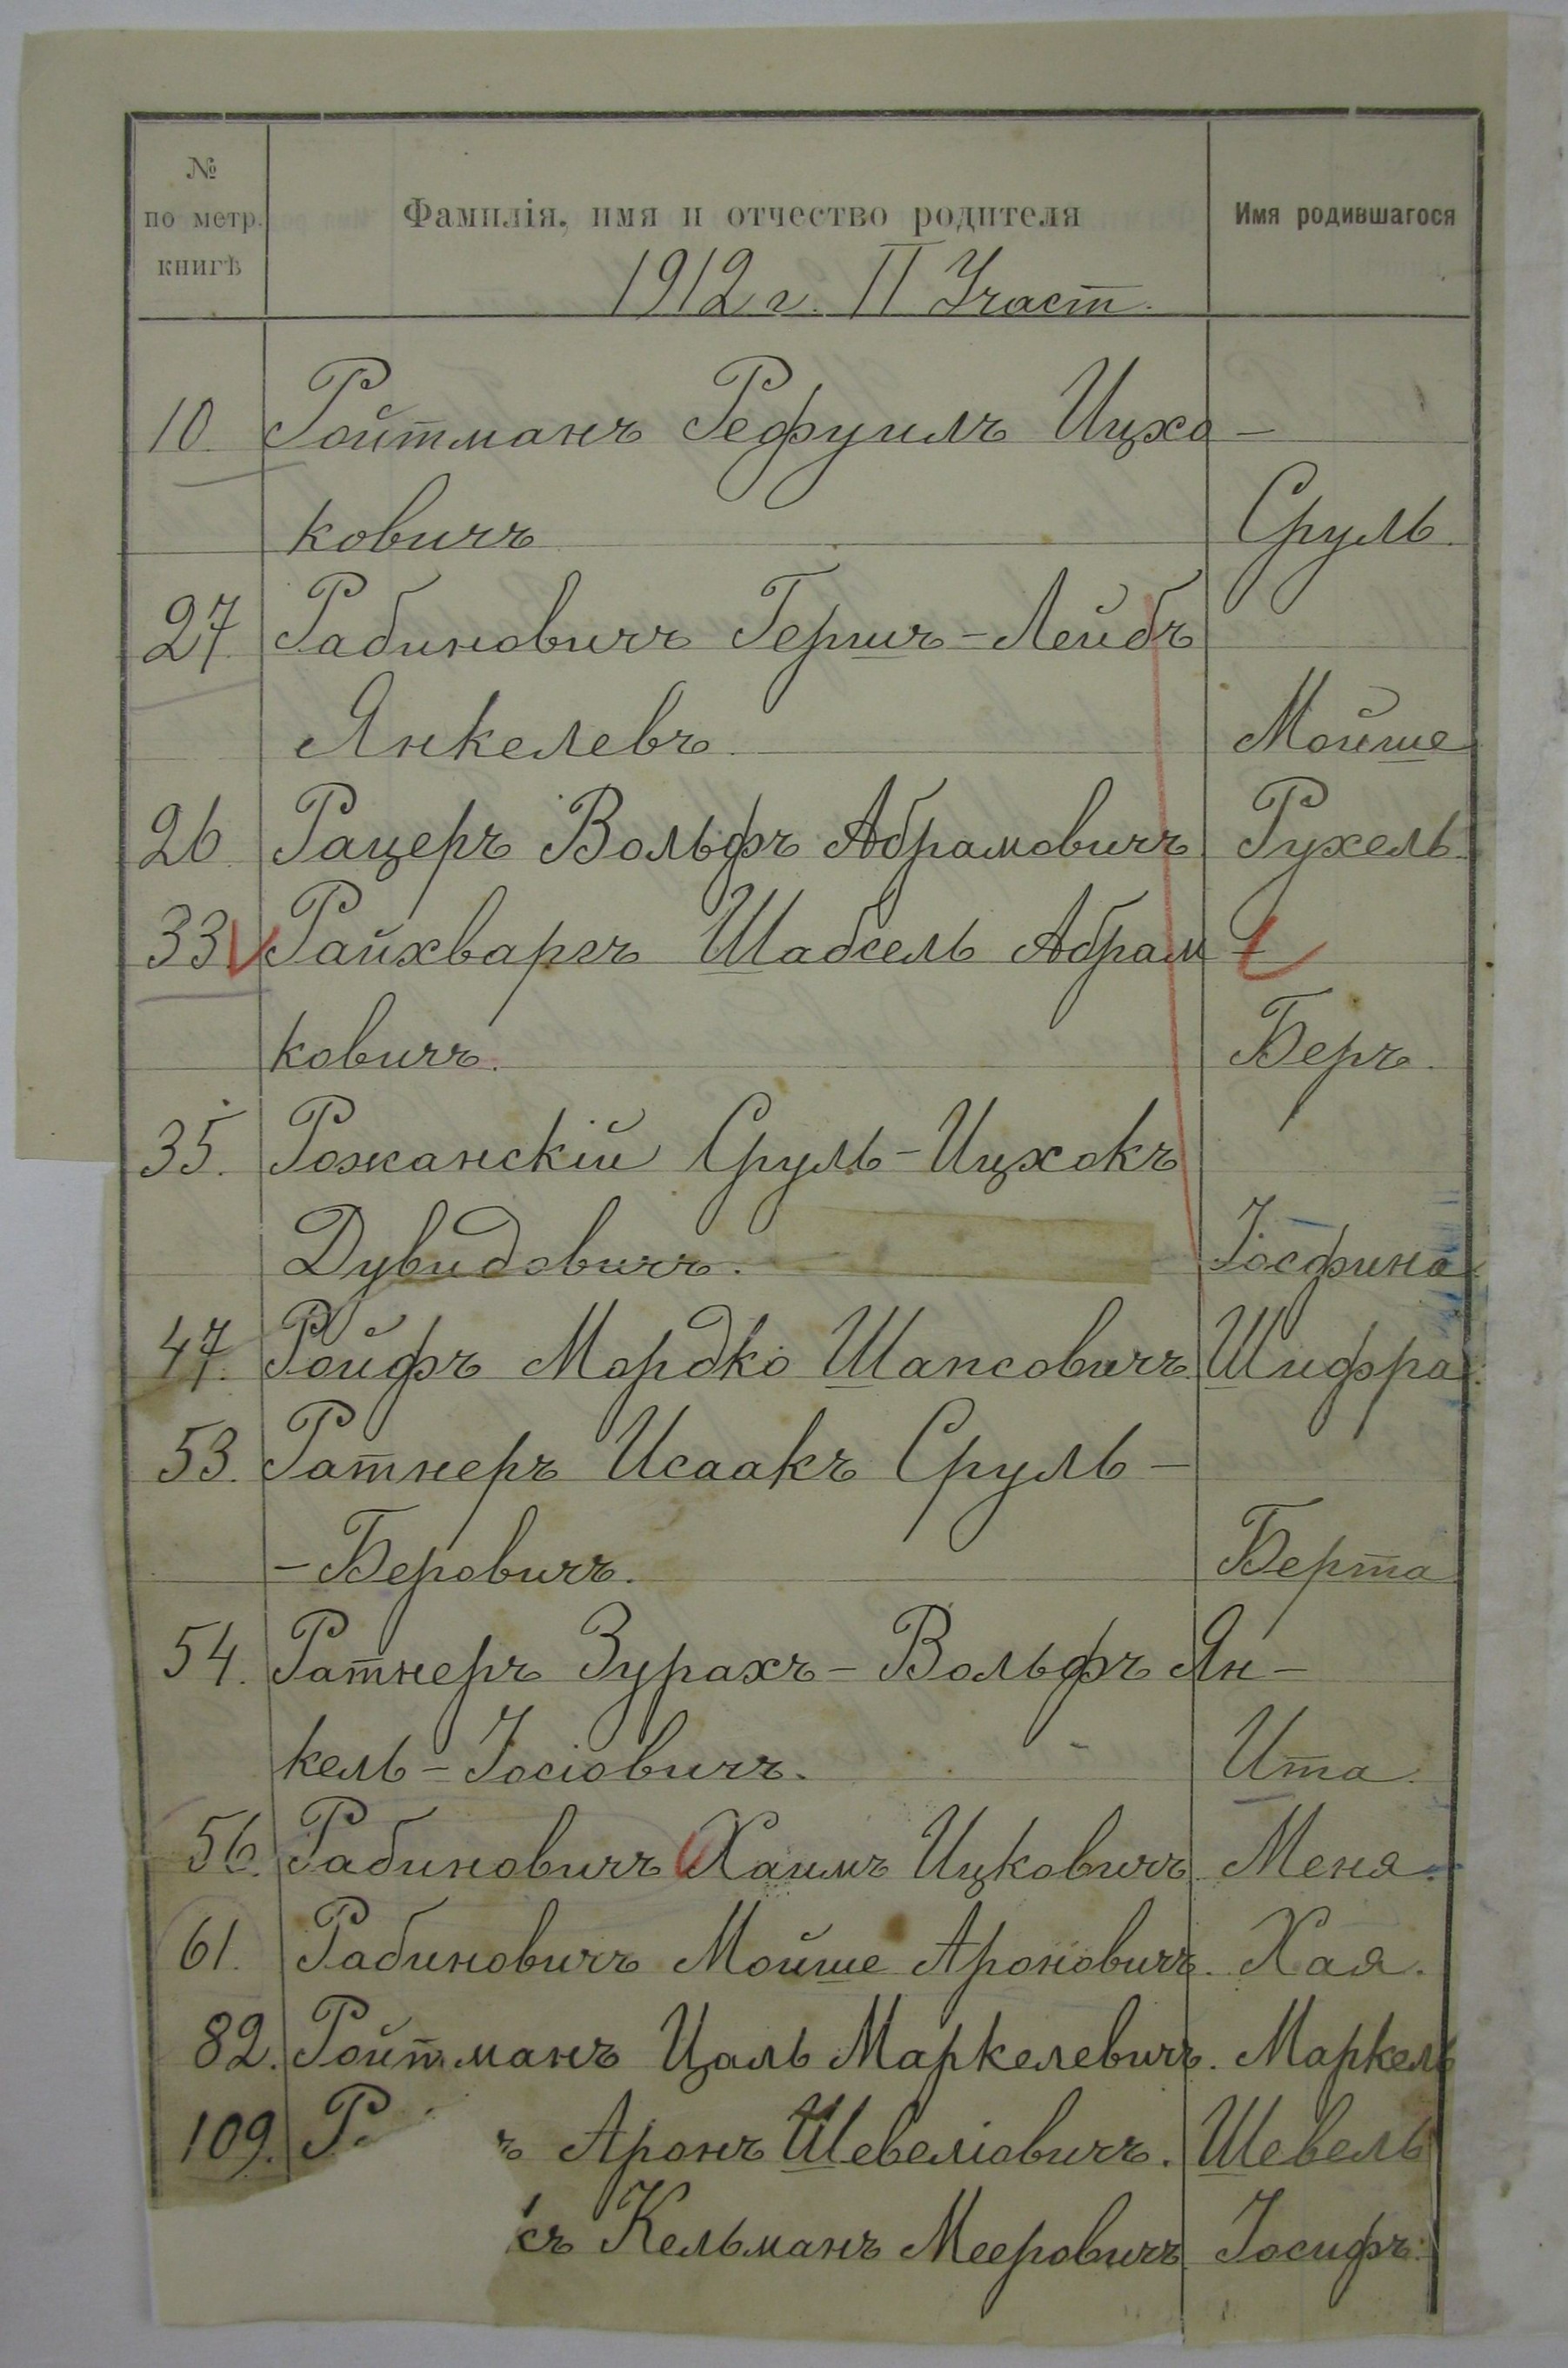 № по метр. книгѣ Фамилія, имя и отчество родителя Имя родившагося
1912 г. II Участ.
10. Ройтманъ Рефуилъ Ицхо-
ковичъ Сруль.
27. Рабиновичъ Гершъ-Лейбъ
Янкелевъ Мойше
26. Рацеръ Вольфъ Абрамовичъ Рухель.
33. Райхваргъ Шабсель Абрам-
ковичъ. Беръ.
35. Рожанскій Сруль-Ицхокъ
Дувидовичъ. Іосфина
47. Ройфъ Мордко Шапсовичъ. Шифра.
53. Ратнеръ Исаакъ Сруль-
-Беровичъ. Берта
54. Ратнеръ Зурахъ-Вольфъ Ян-
кель-Іосіовичъ. Ита.
56. Рабиновичъ Хаимъ Ицковичъ Меня.
61. Рабиновичъ Мойше Ароновичъ. Хая.
82. Ройтманъ Цаль Маркелевичъ. Маркель
109. Р ъ Аронъ Шевеліовичъ. Шевель
съ Кельманъ Мееровичъ Іосифъ.